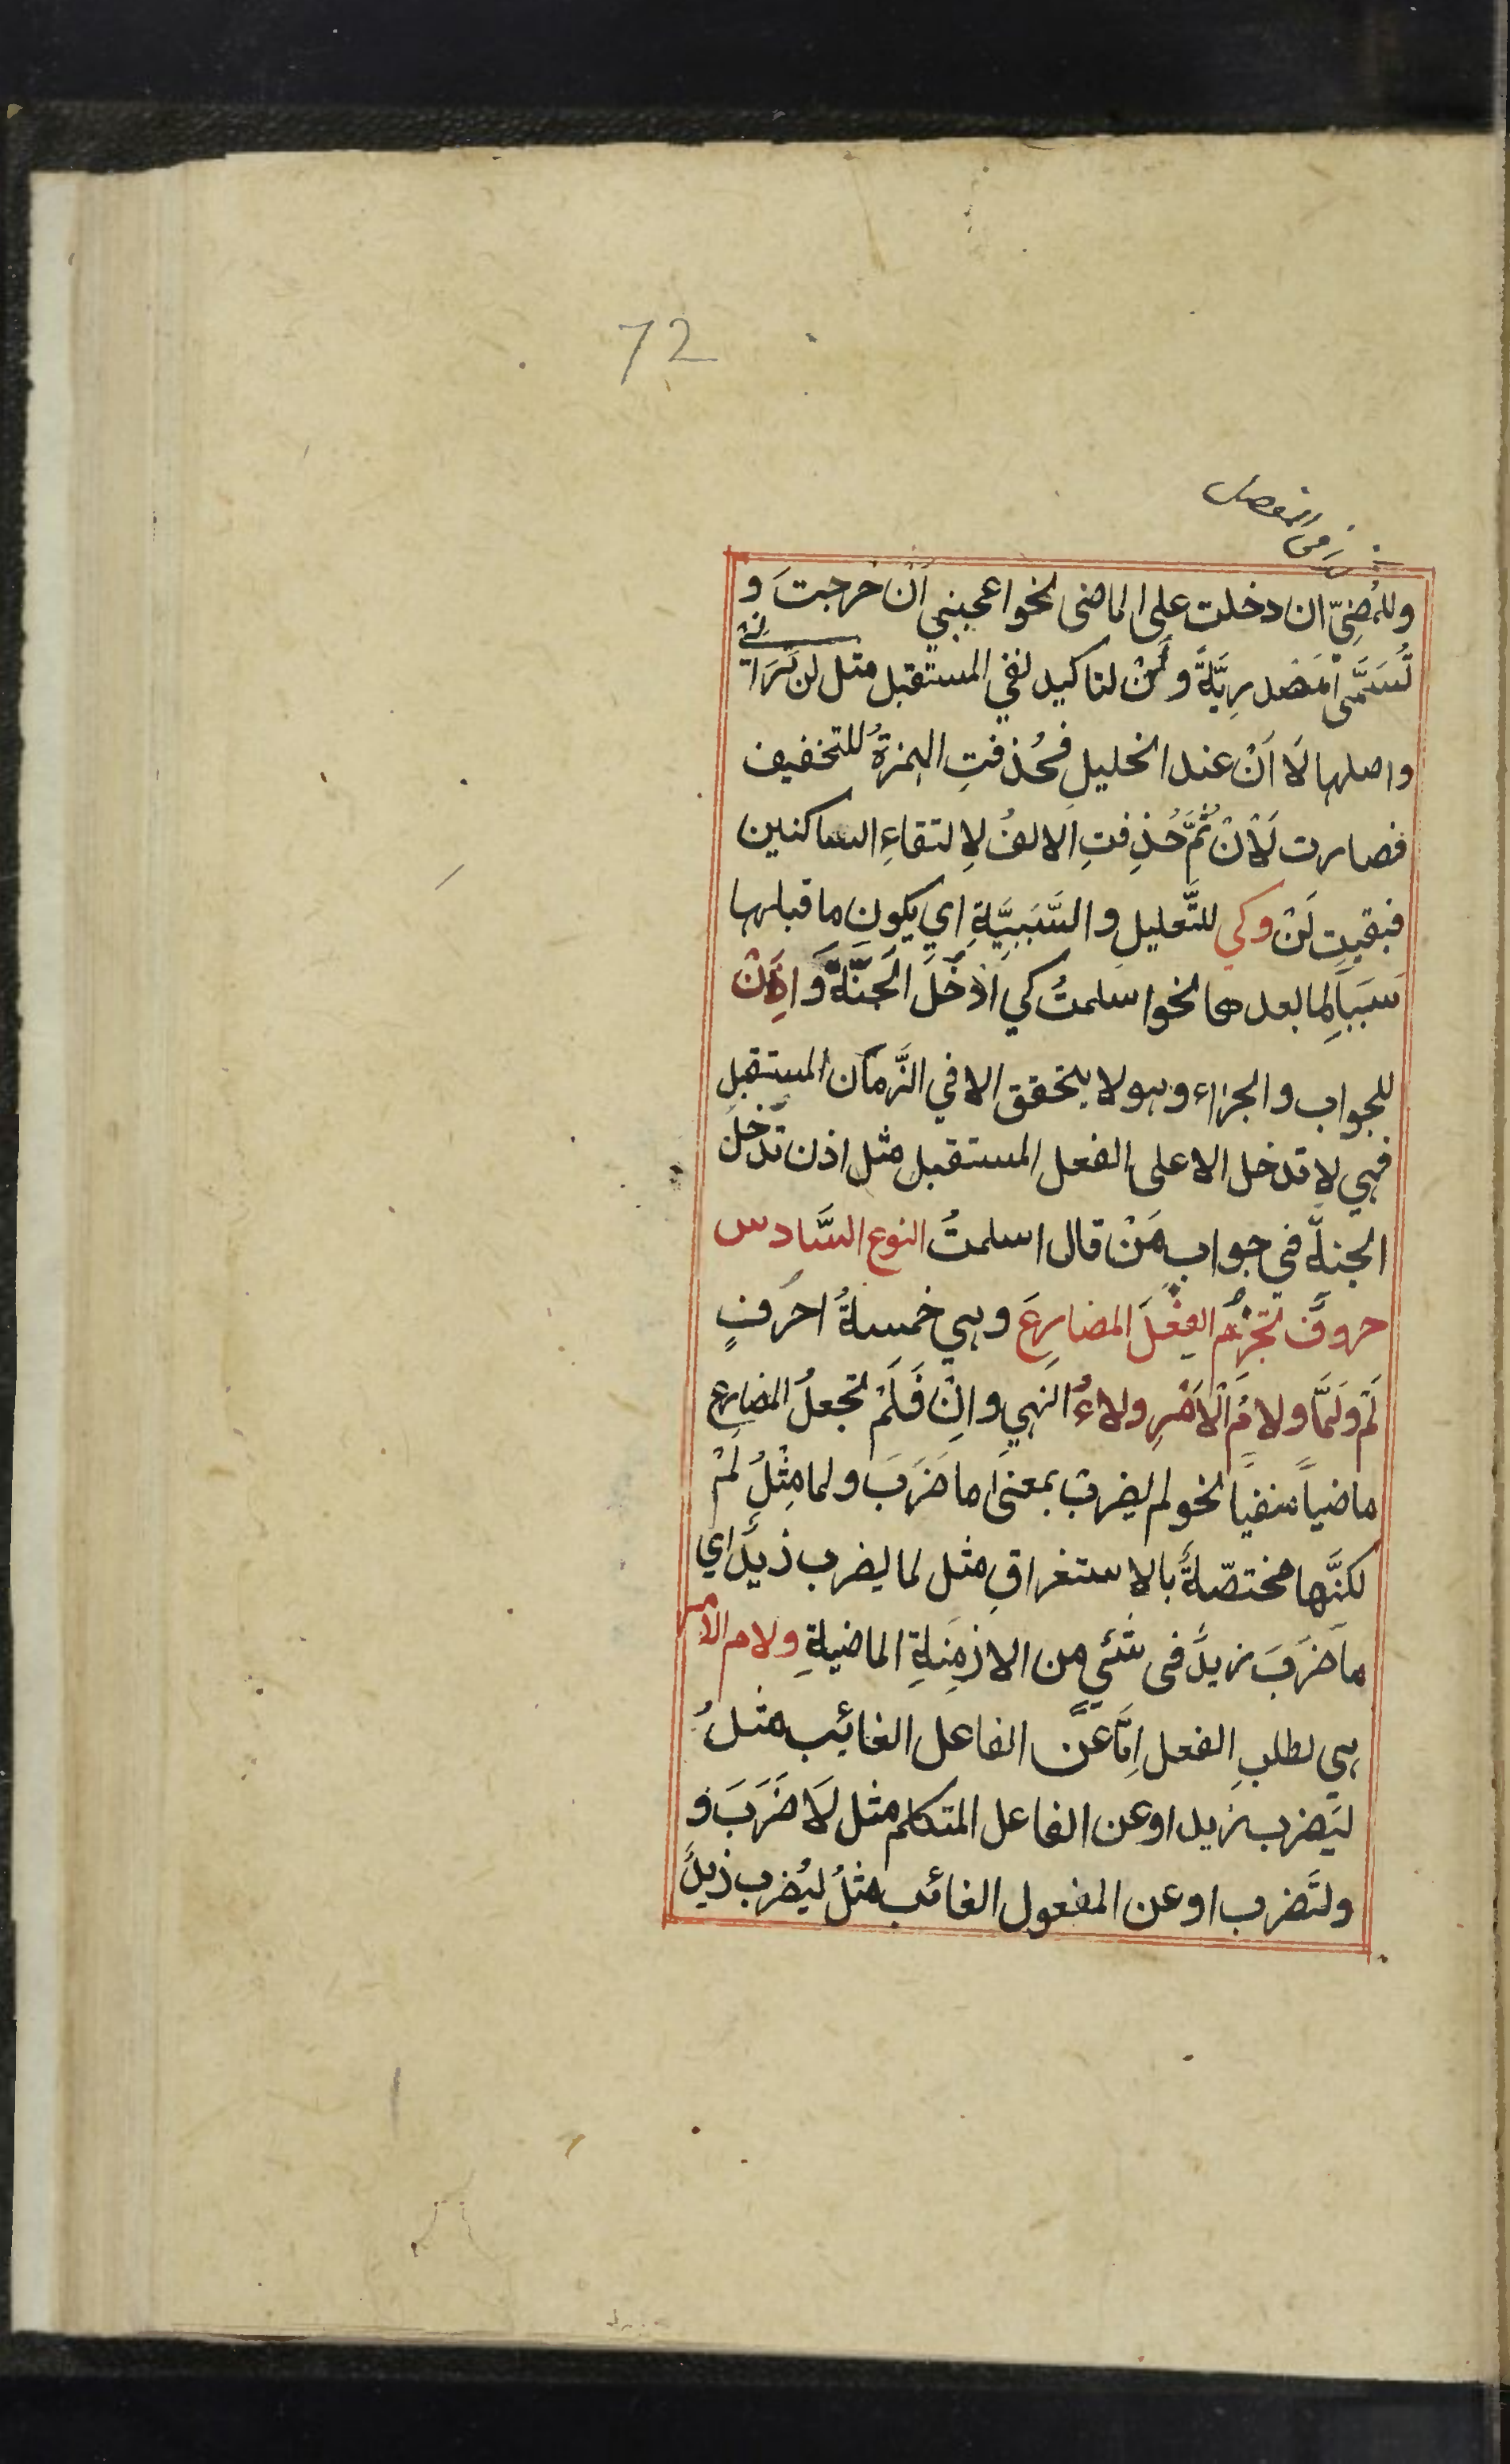 72
وللمُضِيّ ان دخلت على الماضى نحو اعجبني اَنْ خرجتَ و
تُسَمَّى مَصْدرِيَّةً و لَنْ لتاكيد نفي المستقبل مثل لن تَرَانِي
واصلها لَا اَنْ عند الخليل فحُذفتِ الهمزةُ للتخفيف
فصارت لَاْنْ ثُمَّ حُذِفتِ الالفُ لِالتقاءِ الساكنين
فبقيت لَنْ وكي للتَّعليل والسَّبَبِيَّةِ اي يكون ما قبلها
سَبَباً لِما بعدها نحو اسلمتُ كي اَدْخُلَ الجَنَّةَ وَ اِذَنْ
للجواب والجزاء وهو لا يتحقق الا في الزَّمان المستقبل
فهي لا تدخل الا على الفعل المستقبل مثل اذن تدْخُلَ
الجنةَ في جواب مَنْ قال اسلمتُ النوع السَّادس
حروفٌ تجزِمُ الفِعْلَ المضارِعَ وهي خمسةُ احرفٍ
لَمْ ولَمَّا ولامُ الْاَمْرِ ولاءُ النهي واِنْ فَلَمْ تجعلُ المضارع
ماضياً منفياً نحو لم يضربْ بمعنى ما ضَرَبَ ولما مِثْلُ لَمْ
لكنَّها مختصّةٌ بالاستغراقِ مثل لما يضرب زيدٌ اي
ما ضَرَبَ زيدٌ فى شئي من الازمِنةِ الماضيةِ ولام الامر
هي لطلبِ الفعل اِمَّا عَنْ الفاعل الغائب مثلُ
ليَضرب زيد او عن الفاعل المتكلم مثل لَاضَرَبَ و
ولنَضرب او عن المفعول الغائب مثلُ ليُضرب زيدٌ